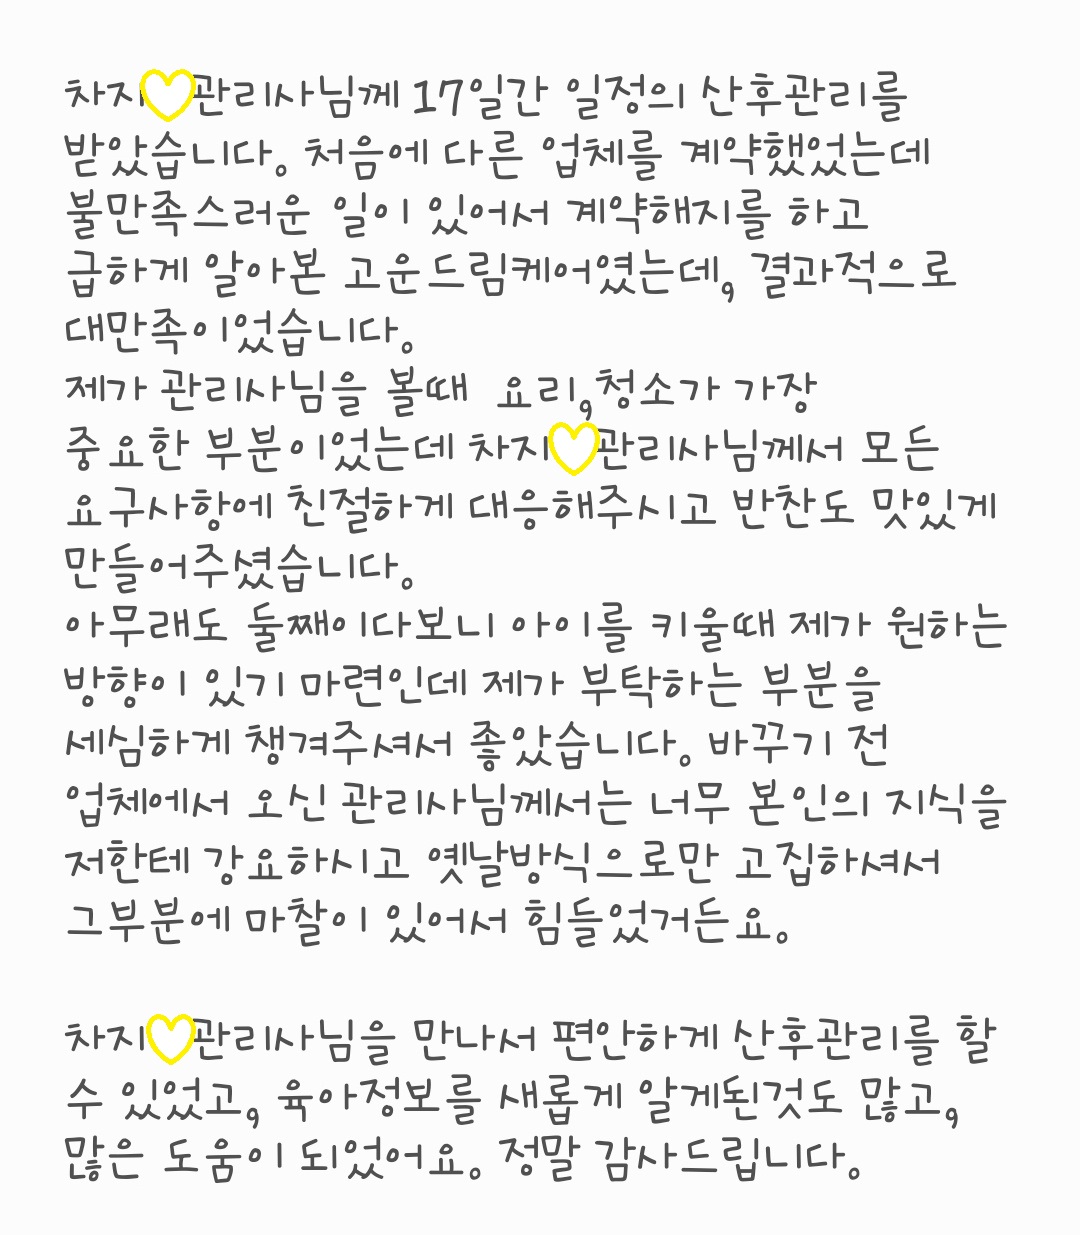 차지💛관리사님께 17일간 일정의 산후관리를
받았습니다. 처음에 다른 업체를 계약했었는데
불만족스러운 일이 있어서 계약해지를 하고
급하게 알아본 고운드림케어였는데, 결과적으로
대만족이었습니다.
제가 관리사님을 볼때 요리,청소가 가장
중요한 부분이었는데 차지💛관리사님께서 모든
요구사항에 친절하게 대응해주시고 반찬도 맛있게
만들어주셨습니다.
아무래도 둘째이다보니 아이를 키울때 제가 원하는
방향이 있기 마련인데 제가 부탁하는 부분을
세심하게 챙겨주셔서 좋았습니다. 바꾸기 전
업체에서 오신 관리사님께서는 너무 본인의 지식을
저한테 강요하시고 옛날방식으로만 고집하셔서
그부분에 마찰이 있어서 힘들었거든요.
차지💛관리사님을 만나서 편안하게 산후관리를 할
수 있었고, 육아정보를 새롭게 알게된것도 많고,
많은 도움이 되었어요. 정말 감사드립니다.